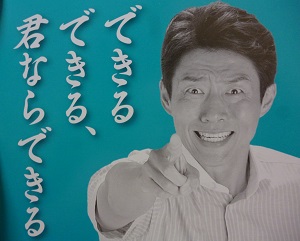 できる
できる、
君ならできる